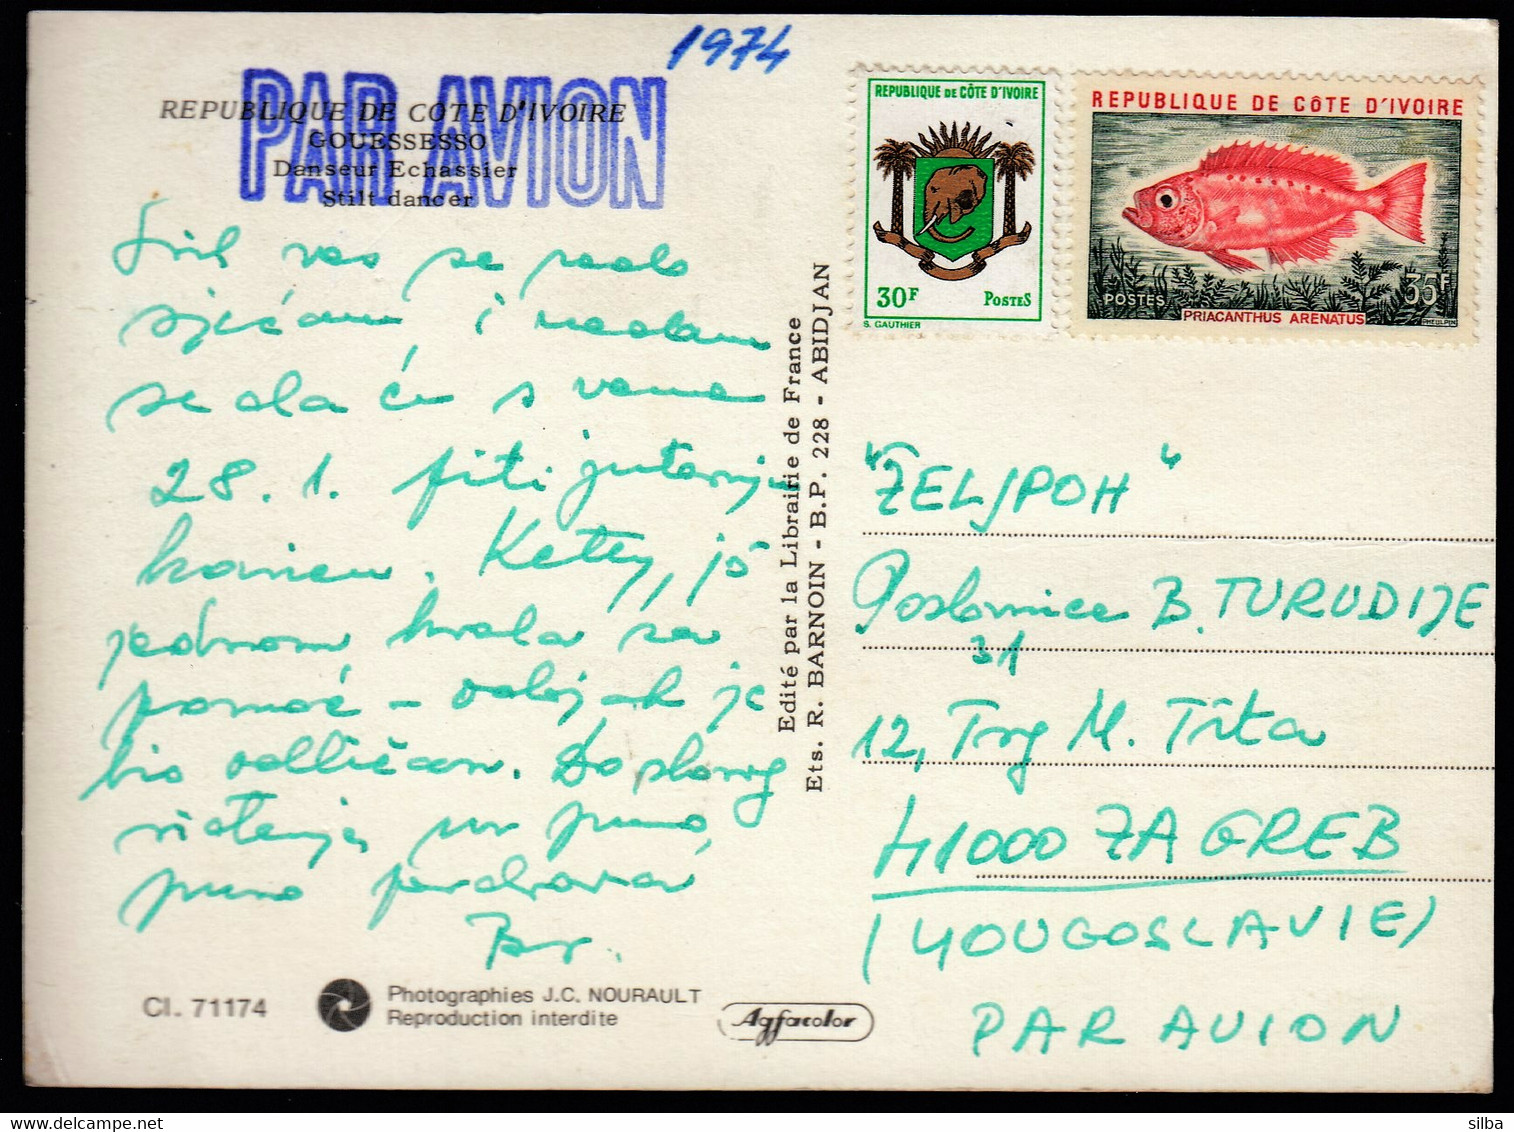 1974
PAR AVION
REPUBLIQUE DE COTE D'IVOIRE
GOUESSESSO
Danseur Echassier
Stilt dancer
vas se rado
sjećam i nadam
se da ću s vama
28. 1. piti jutarnju
kavicu. Ketty, još
jednom hvala za
pomoć – ručak je
bio odličan. Do skorog
viđenja uz puno,
puno pozdrava
Br.
Cl. 71174
Photographies J.C. NOURAULT
Reproduction interdite
Agfacolor
Edité par la Librairie de France
Ets. R. BARNOIN - B.P. 228 - ABIDJAN
REPUBLIQUE DE CÔTE D'IVOIRE
30F POSTES
S. GAUTHIER
REPUBLIQUE DE CÔTE D'IVOIRE
POSTES 35F
PRIACANTHUS ARENATUS
PHEULPIN
"ŽELJPOH"
Poslovnica B. TURUDIJE
31
12, Trg M. Tita
41000 ZAGREB
(YOUGOSLAVIE)
PAR AVION
silba